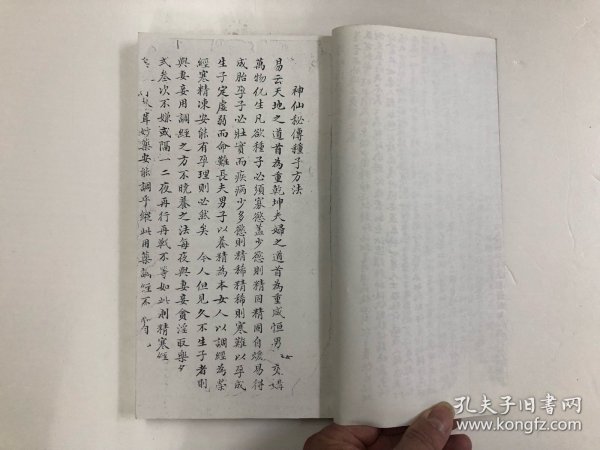 神仙秘傳種子方法
易云天地之道首為重乾坤夫婦之道首為重咸恒男女交媾
萬物化生凡欲種子必須寡慾蓋少慾則精固精固自煖易得
成胎孕子必壯實而疾病少多慾則精稀精稀則寒難以孕成
生子定虛弱而命難長夫男子以養精為本女人以調經為榮
經寒精凍安能有孕理則必然矣 今人但見久不生子者則
與妻妾用調經之方不曉養之法每夜與妻妾貪淫取樂夕
弍叁次不嫌或隔一二夜再行再戰不等如此則精寒經
茸好藥安能調乎縱此用藥 經不
孔夫子旧书网
www.kongfz.com